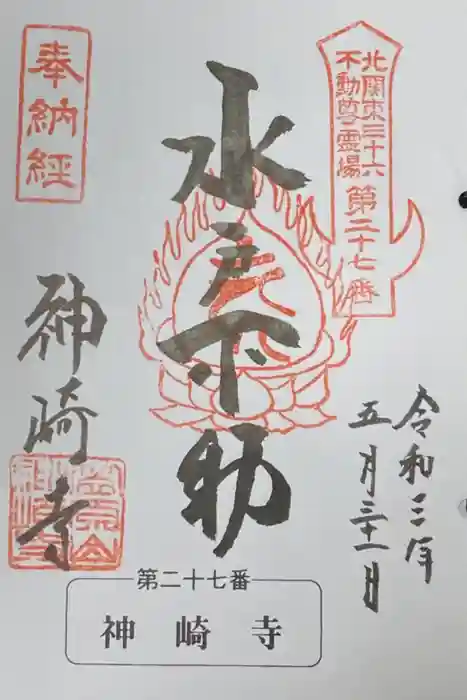 北関東三十六
不動尊霊場
第二十七番
奉納経
水戸不動
令和三年
五月三十一日
神崎寺
第二十七番
神崎寺